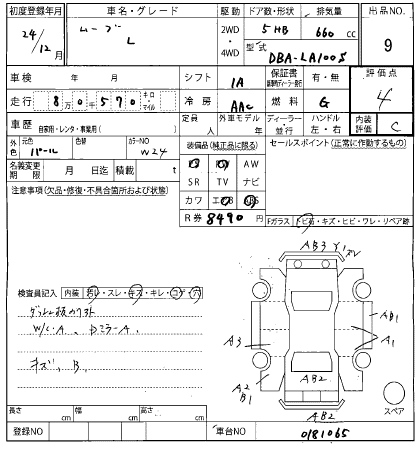 初度登録年月 車名・グレード 駆動 ドア数・形状 排気量 出品NO.
24/12月 ムーブ L 2WD・4WD 5HB 660cc 9
型式 DBA-LA100S
車検 年 月 シフト IA 保証書 有・無 評価点 4
走行 8万0千570 キロ・マイル 冷房 AAC 燃料 G
車歴 自家用・レンタ・事業用( ) 定員 人 外車モデル 年 ディーラー・並行 ハンドル 左・右 内装評価 C
外色 元色 パール 色替 カラーNO W24
装備品(純正品に限る) セールスポイント(正常に作動するもの)
名義変更期限 月 日迄 積載 t
AW
SR TV ナビ
カワ
R券 8490円
注意事項(欠品・修復・不具合箇所および状態)
Fガラス トビ石・キズ・ヒビ・ワレ・リペア跡
検査員記入 内装 汚レ・スレ・キズ・キレ・コゲ・穴
W/C・A、DミラーA、
キズ、B、
AB3 Y1
AB1
A1
A3
A2
B1
AB2
AB2
スペア
長さ cm 幅 cm 高さ cm
登録NO 車台NO 0181065